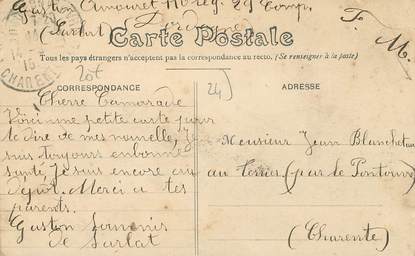 Gaston Limouret 110 reg. 29 Comp.
(Sarlat) Dordogne
F. M.
Carte Postale
Tous les pays étrangers n'acceptent pas la correspondance au recto. (Se renseigner à la poste)
CORRESPONDANCE
ADRESSE
Cherre Camarade
Voici une petite carte pour
te dire de mes nouvelle, Je
suis toujours en bonne
santé, Je suis encore au
Merci a tes
parents.
Gaston Souvenir
de Sarlat
Monsieur Jean Blancheton
au Terrier (par le Pontouvre)
(Charente)